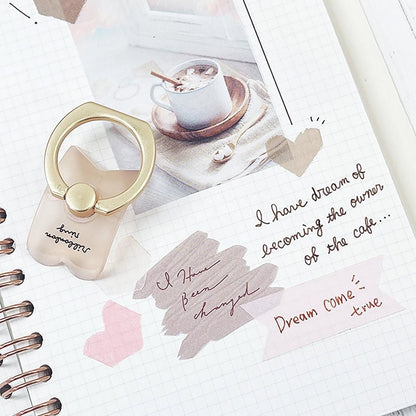 I have dream of
becoming the owner
of the cafe...
I Have
Been
changed
Dream come
true
ribbodon
ring